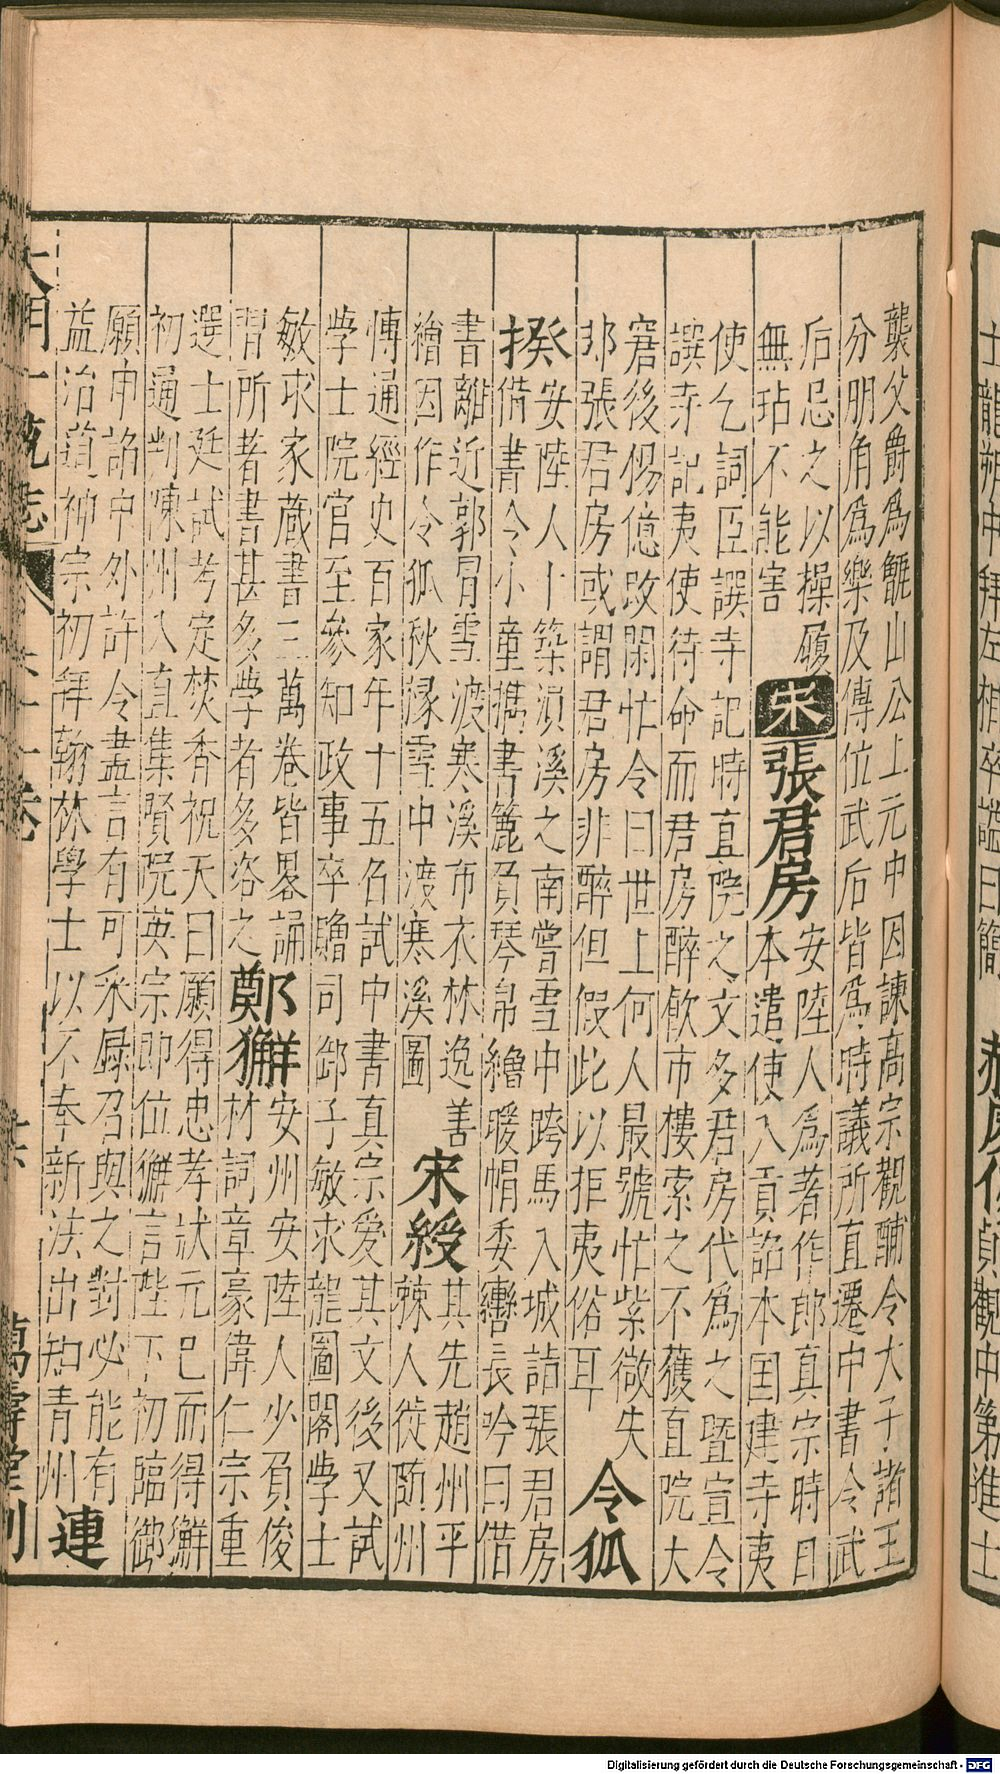 襲父爵爲雝山公上元中因諫高宗觀酺令大子諸王
分朋角爲樂及傳位武后皆爲時議所直遷中書令武
后忌之以操履
無玷不能害
宋
張君房
安陸人爲著作郎真宗時日
本遣使入貢詔本国建寺夷
使乞詞臣譔寺記時直院之文多君房代爲之暨宣令
譔寺記夷使待命而君房醉飲市樓索之不獲直院大
窘後楊億改閑忙令曰世上何人最號忙紫微失
却張君房或謂君房非醉但假此以拒夷俗耳
令狐
揆
安陸人卜築溳溪之南嘗雪中跨馬入城詣張君房
借書令小童攜書簏負琴帛繪暖帽委轡長吟曰借
書離近郭冒雪渡寒溪布衣林逸善
繪因作令狐秋掾雪中渡寒溪圖
宋綬
其先趙州平
棘人徙隨州
博通經史百家年十五名試中書真宗愛其文後又試
學士院官至參知政事卒贈司卸子敏求龍圖閣學士
敏求家蔵書三萬卷皆畧誦
習所者書甚多學者多咨之
鄭獬
安州安陸人少負俊
材詞章豪偉仁宗重
選士廷試考定焚香祝天曰願得忠孝狀元已而得獬
初通判陳州入直集賢院英宗即位獬言陛下初臨御
願申詔中外許令盡言有可采屡召與之對必能有
益治道神宗初拜翰林學士以不奉新法出知青州
連
大明一統志
六十一卷
萬壽堂刊
Digitalisierung gefördert durch die Deutsche Forschungsgemeinschaft - DFG